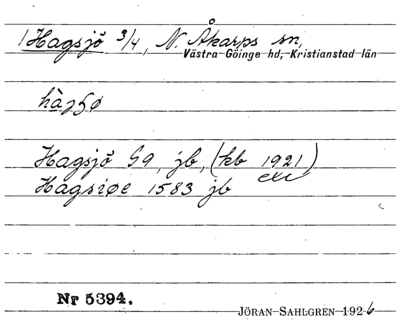 1 Hagsjö 3/4, N. Åkarps sn,
Västra Göinge hd, Kristianstad län
Hagsjö Ga, jb, (kb 1921)
Hagsiøe 1583 jb
Nr 5394.
JÖRAN SAHLGREN 1926